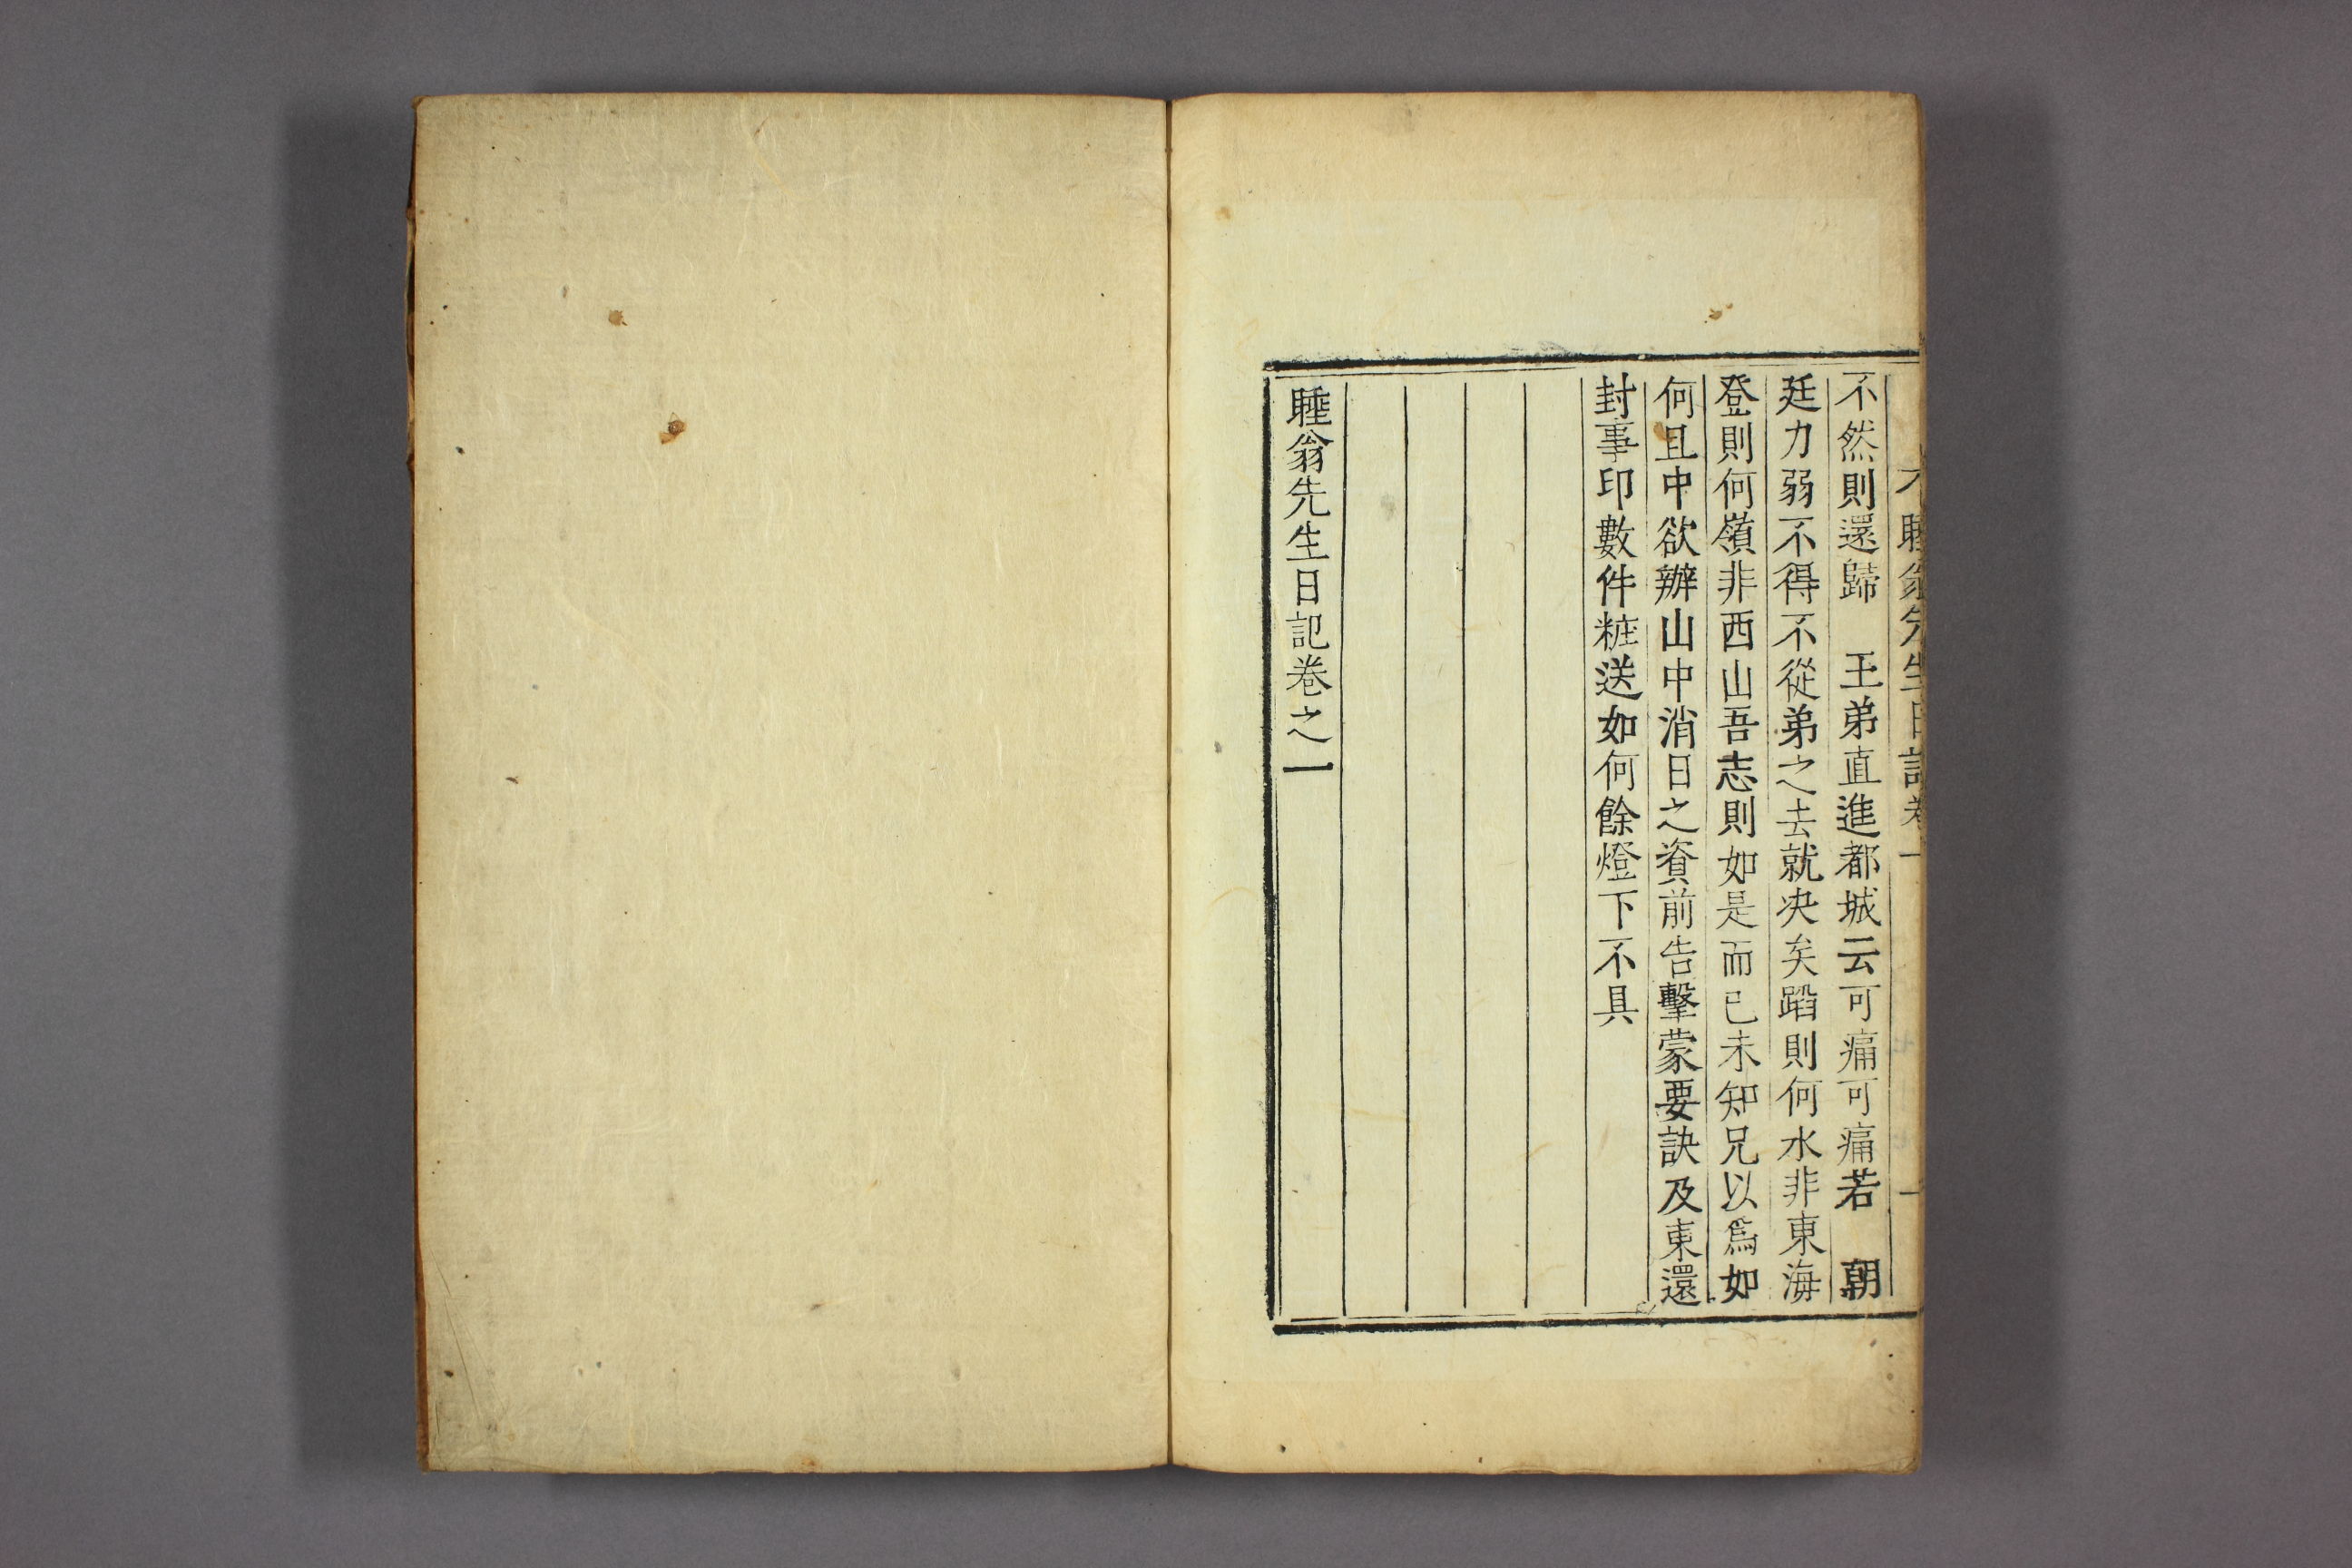 不睡翁先生日記卷一
不然則還歸　王弟直進都城云可痛可痛若　朝
廷力弱不得不從弟之去就决矣蹈則何水非東海
登則何嶺非西山吾志則如是而已未知兄以爲如
何且中欲辦山中消日之資前告擊蒙要訣及東還
封事印數件粧送如何餘燈下不具
睡翁先生日記卷之一